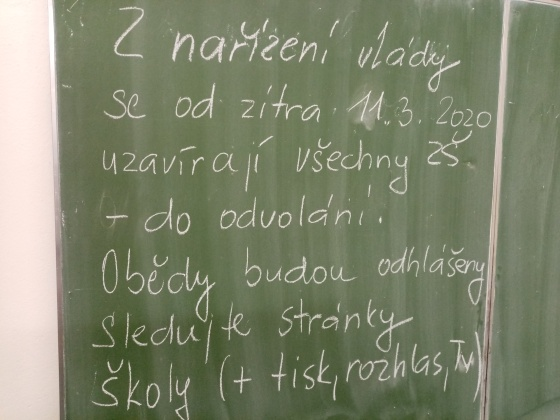 Z nařízení vlády
se od zítra 11.3.2020
uzavírají všechny ZŠ
- do odvolání.
Obědy budou odhlášeny
Sledujte stránky
školy (+ tisk, rozhlas, TV)